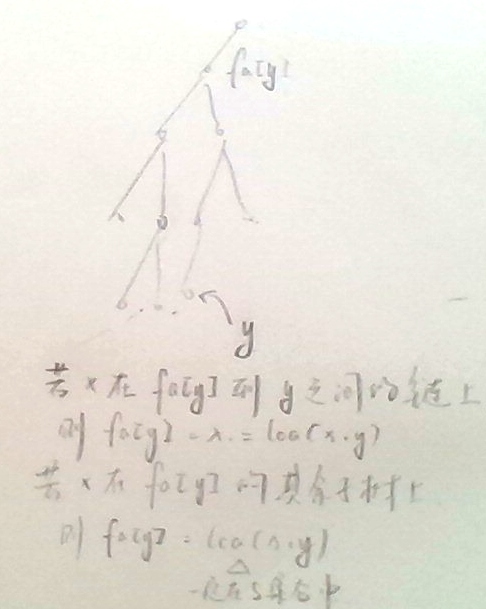 fa[y]
y
若 x 在 fa[y] 到 y 之间的链上
则 fa[y] = x = lca(x,y)
若 x 在 fa[y] 的其余子树上
则 fa[y] = lca(x,y)
一定在S集合中